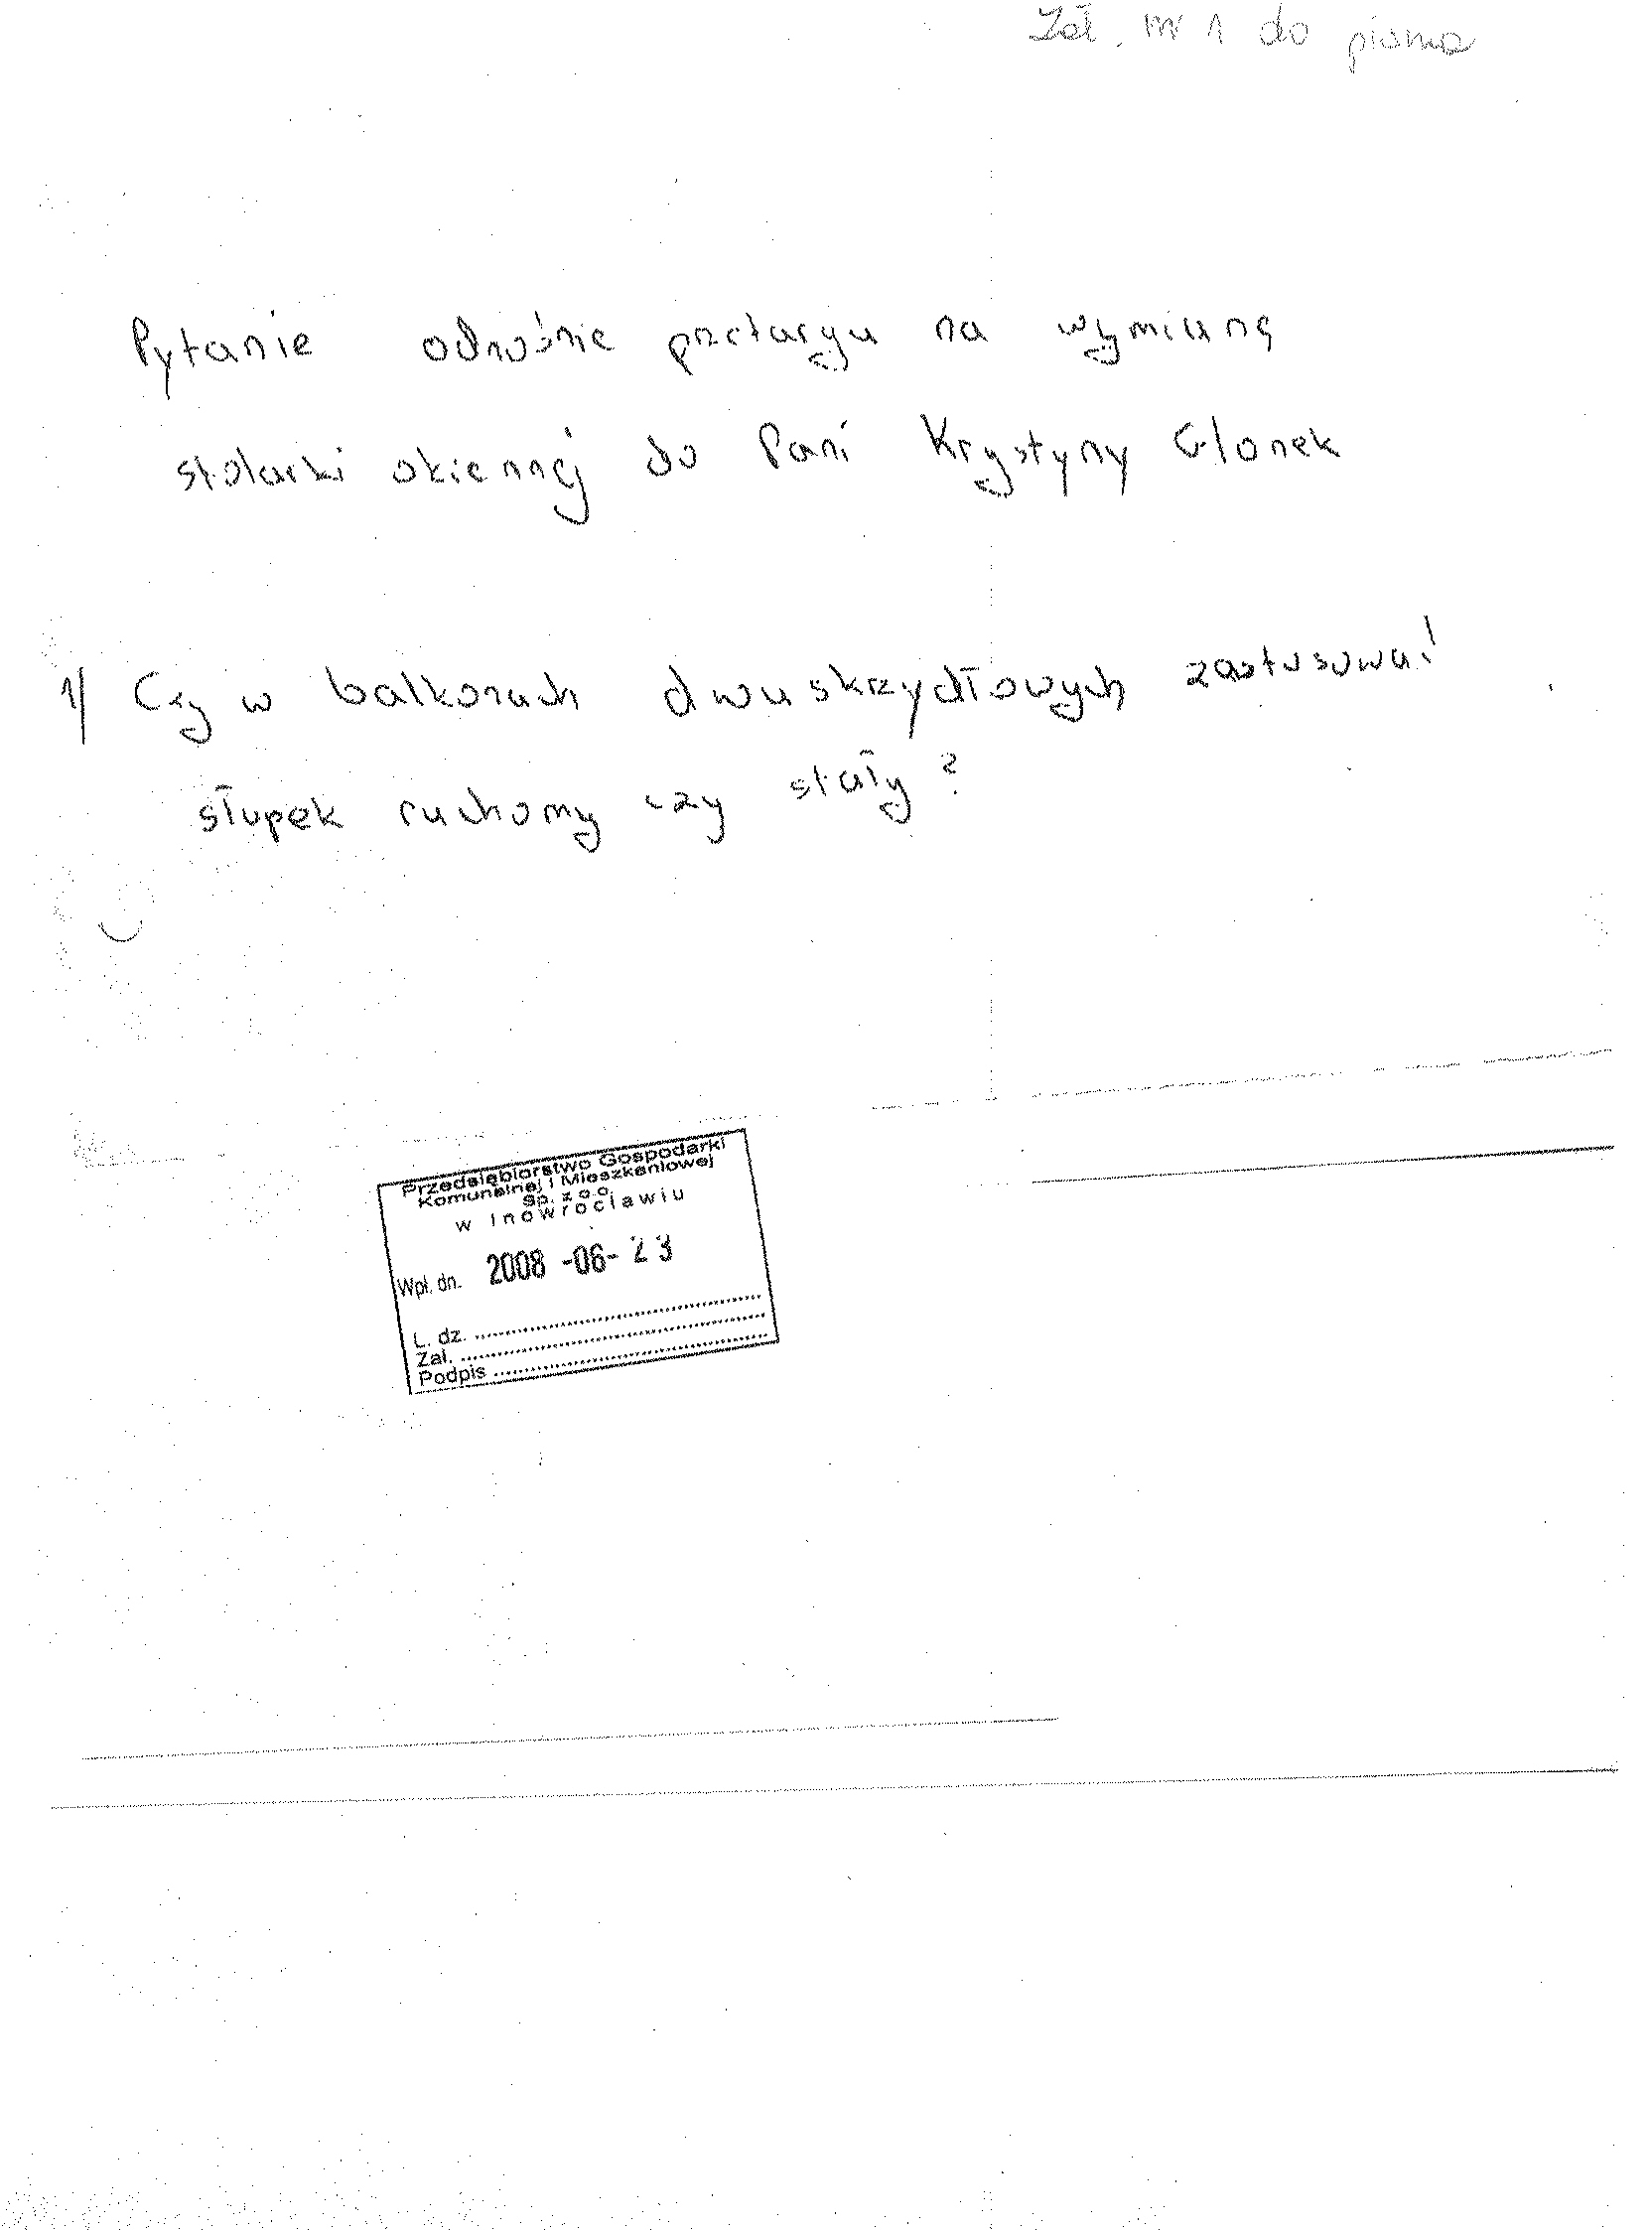 Zał. nr 1 do pisma
Pytanie odnośnie przetargu na wymianę
stolarki okiennej do Pani Krystyny Glonek
1/ Czy w balkonach dwuskrzydłowych zastosować
słupek ruchomy czy stały?
Przedsiębiorstwo Gospodarki
Komunalnej i Mieszkaniowej
Sp. z o.o.
w Inowrocławiu
Wpł. dn. 2008 -06- 23
L. dz. ........................
Zał. ........................
Podpis ........................